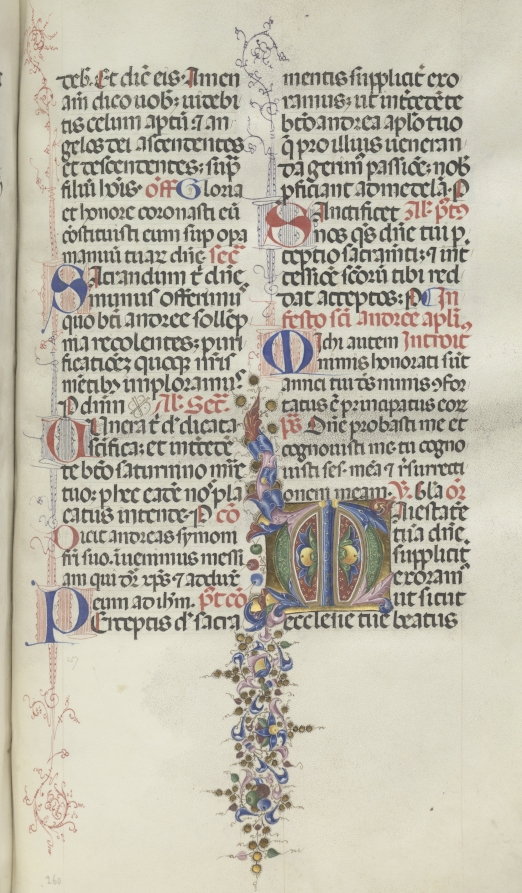 teb̄. Et dic̄ eis. Amen
am̄ dico uob̄: uidebi
tis celum aptū ⁊ an
gelos dei ascendentes
et descendentes: suꝑ
filiū hoīs. off̄ Gloria
et honore coronasti eū
ꝯstituisti eum sup opa
manuū tuaꝝ dn̄e. sec̄
Sacrandum t̄ dn̄e
munus offerimꝰ
quo bt̄i andree sollēp
nia recolentes: puri
ficationē quoqꝫ nr̄is
mētibꝫ imploramꝰ
P dn̄m Al̄. Sec̄.
Uncra t̄ d̄ dicata
scifica: et int̄cede
te bt̄o saturnino mr̄e
tuo: ꝑ hec eadē nos pla
catus intende. P cō
Dicit andreas symoni
fr̄i suo. īuenimus messi
am qui dr̄ xp̄s. ⁊ adduxͭ
eum ad ih̄m. p̄t cō
Perceptis d̄ sacra
mentis suppliciͭ exo
ramus: ut int̄cedēte
bt̄o andrea aplo tuo
q̄ pro illius ueneran
da gerim̉ passiōe: nob̄
ꝓficiant ad medelā. P
Sanctificet Al̄. p̄tꝯ
nos q̄s dn̄e tui ꝑ
ceptio sacram̄ti: ⁊ int̄
cessiōe scōrū tibi red
dat acceptos: P In
festo sc̄i andree apl̄i.
Michi autem Introit̉
nimis honorati sūt
amici tui ds̄ nimis ꝯfor
tatus ē principatus eoꝝ
ps̄ Dn̄e probasti me et
cognouisti me: tu cogno
uisti ses. meā ⁊ r̄surrecti
onem meam. V̄. gl̄a or̄
Maiestatē
tuā dn̄e
suppliciͭ
exoram̉
ut sicut
ecclesie tue beatus